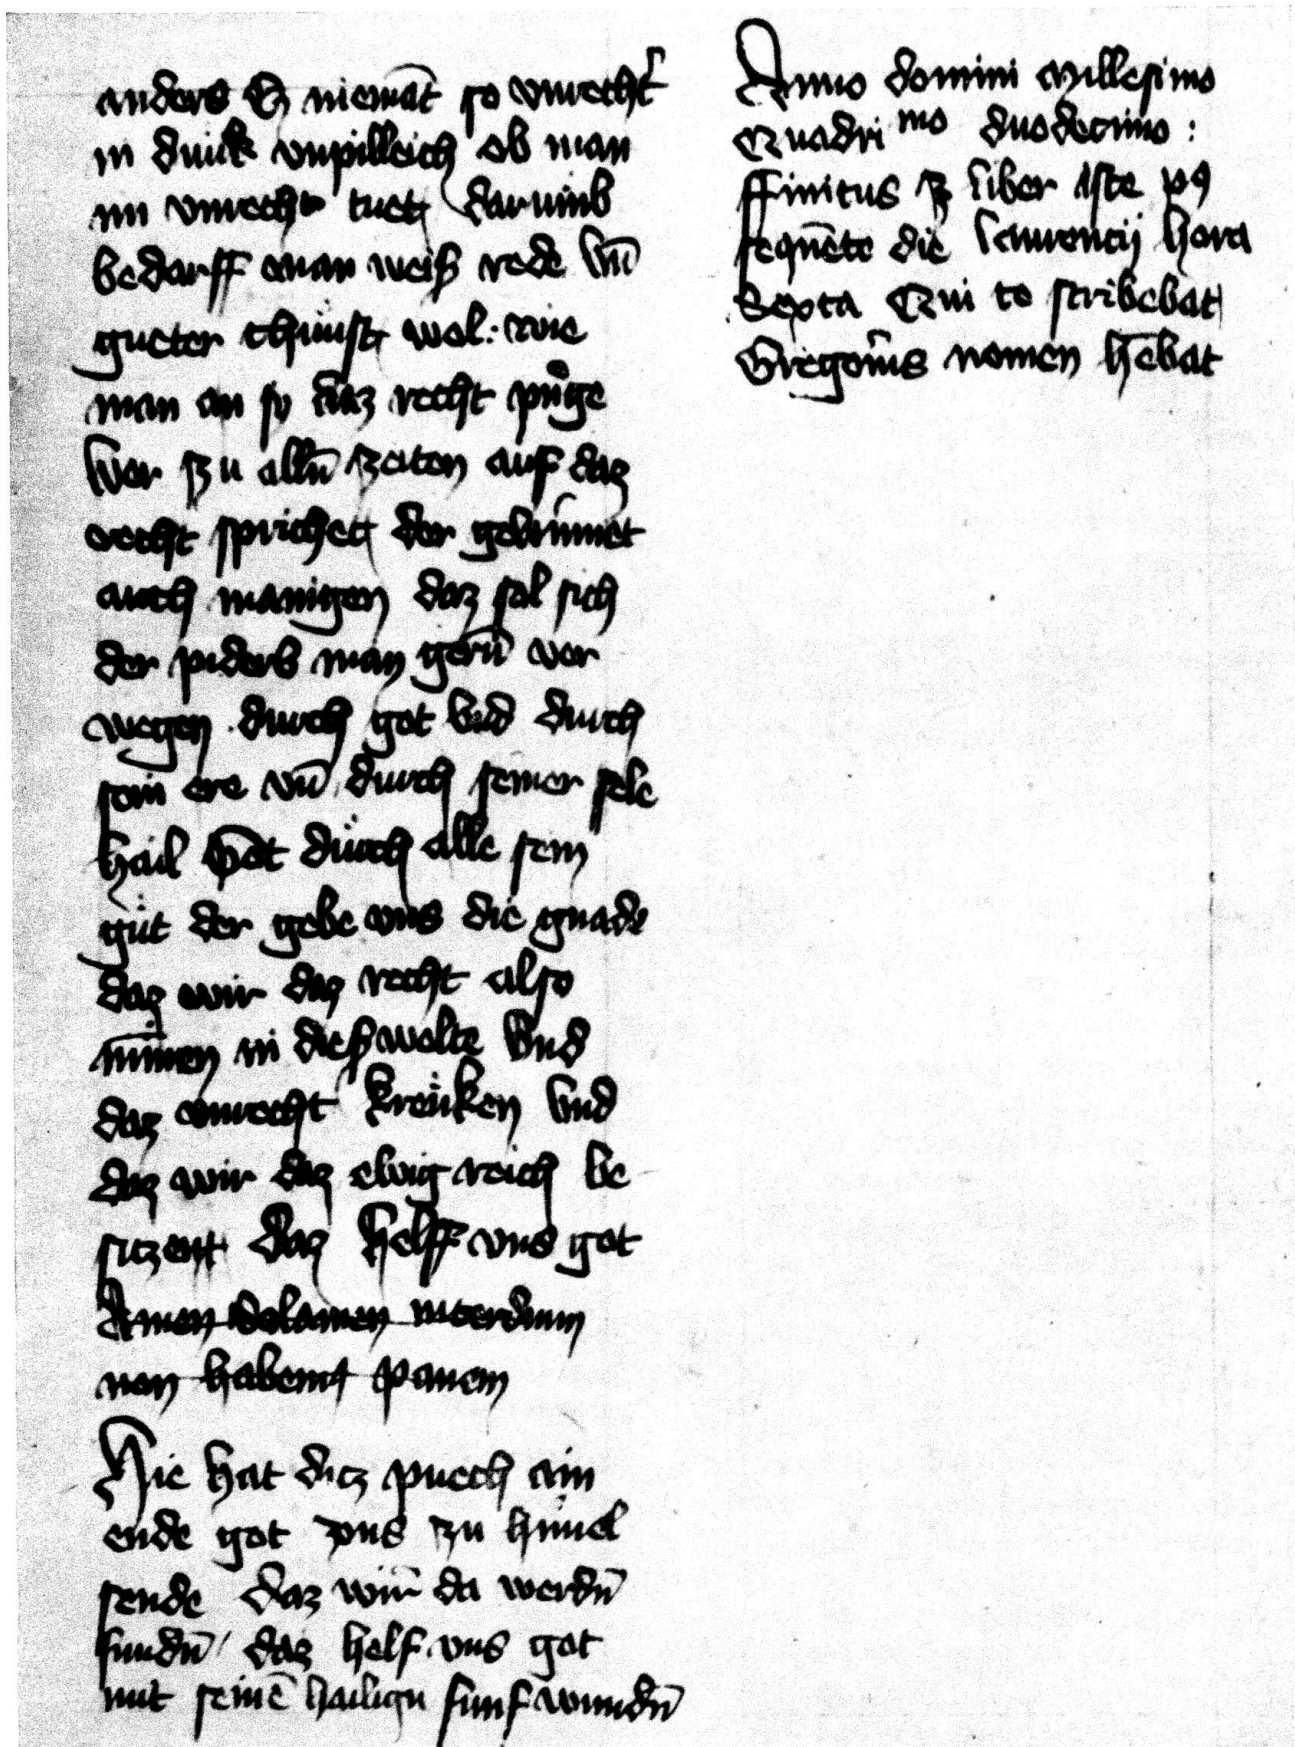 anders Ez niemāt so vnrecht
in dunk vnpilleich ob man
im vnrecht tuet darumb
bedarff man weiſz rede vn̄
gueter chūnst wol : wie
man an so daz recht pringe
Wer zu alln̄ zeiten auf daz
recht sprichet der gekrūmet
auch manigen daz sol sich
der piderb man gern̄ ver
wegen durch got vnd durch
sein ere vn̄ durch seiner sele
hail Got durch alle sein
güt der gebe vns die gnade
daz wir daz recht also
minnen in dieſz welte vnd
daz vnrecht krenken vnd
daz wir daz ewig reich be
siczent daz helff vns got
Amen solamen interdum
non habemꝰ panem
Hie hat dicz puech ain
ende got vns zu himel
sende daz wir da werdn̄
fundn̄ / daz helf vns got
mit seinē heilign funf wundn̄
Anno domini Millesimo
Quadri mo duodecimo :
ffinitus est liber iste pꝰ
sequēte die laurencij hora
Sexta Qui te scribebat
Gregorius nomen hēbat